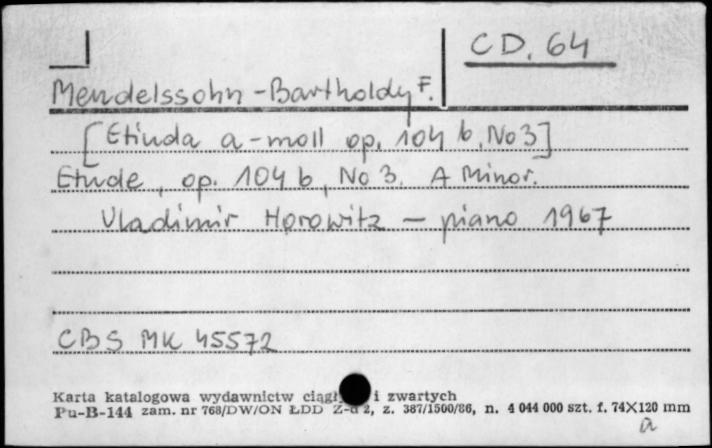 CD. 64
Mendelssohn-Bartholdy F.
[Etiuda a-moll op. 104 b, No 3]
Etude, op. 104 b, No 3. A Minor.
Vladimir Horowitz – piano 1967
CBS MK 45572
Karta katalogowa wydawnictw ciągł i zwartych
Pu-B-144 zam. nr 768/DW/ON ŁDD Z-d 2, z. 387/1500/86, n. 4 044 000 szt. f. 74X120 mm
a